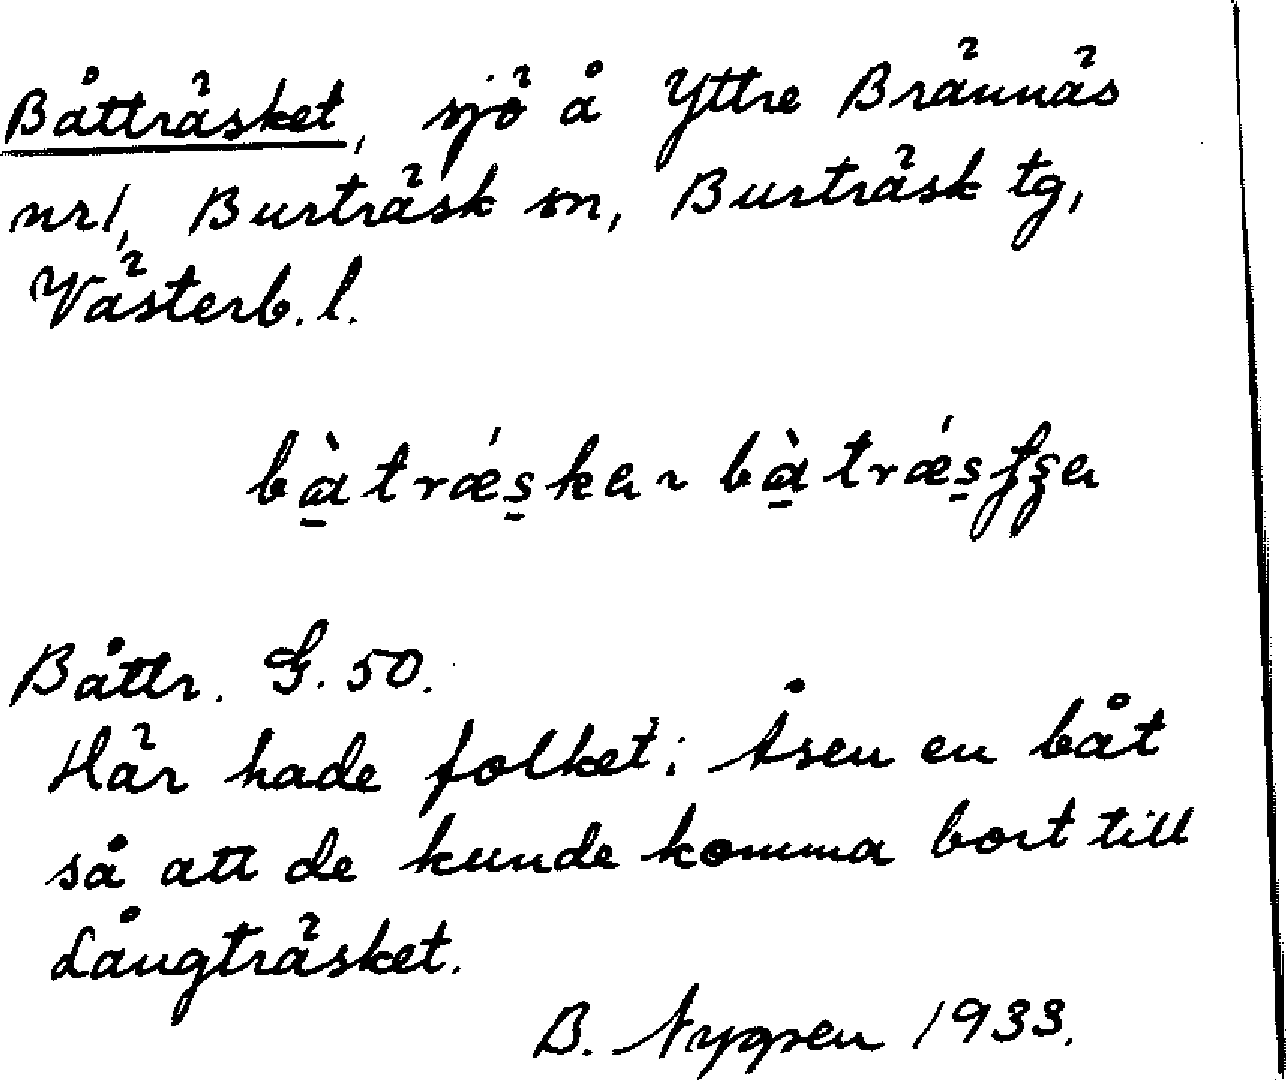 Båtträsket, sjö å Yttre Brännäs
nr1, Burträsk sn, Burträsk tg,
Västerb. l.
Båttr. G. 50.
Här hade folket i Åsen en båt
så att de kunde komma bort till
Långträsket.
B. Nygren 1933.